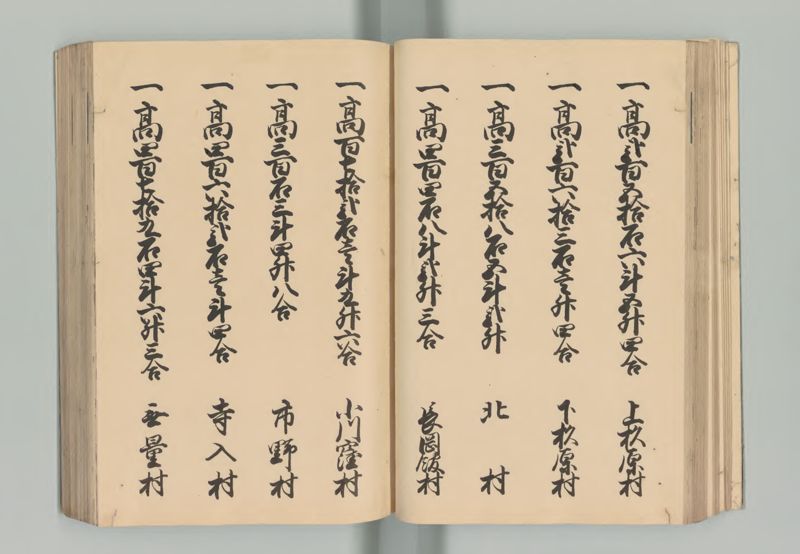 一高弐百五拾石六斗五升四合 上杦原村
一高弐百六拾三石壱升四合 下杦原村
一高三百五拾八石五斗弐升 北村
一高四百四石八斗弐升三合 長岡飯村
一高百七拾弐石壱斗九升六合 小川窪村
一高三百石三斗四升八合 市野村
一高四百六拾弐石壱斗四合 寺入村
一高四百七拾九石四斗六升三合 無量村